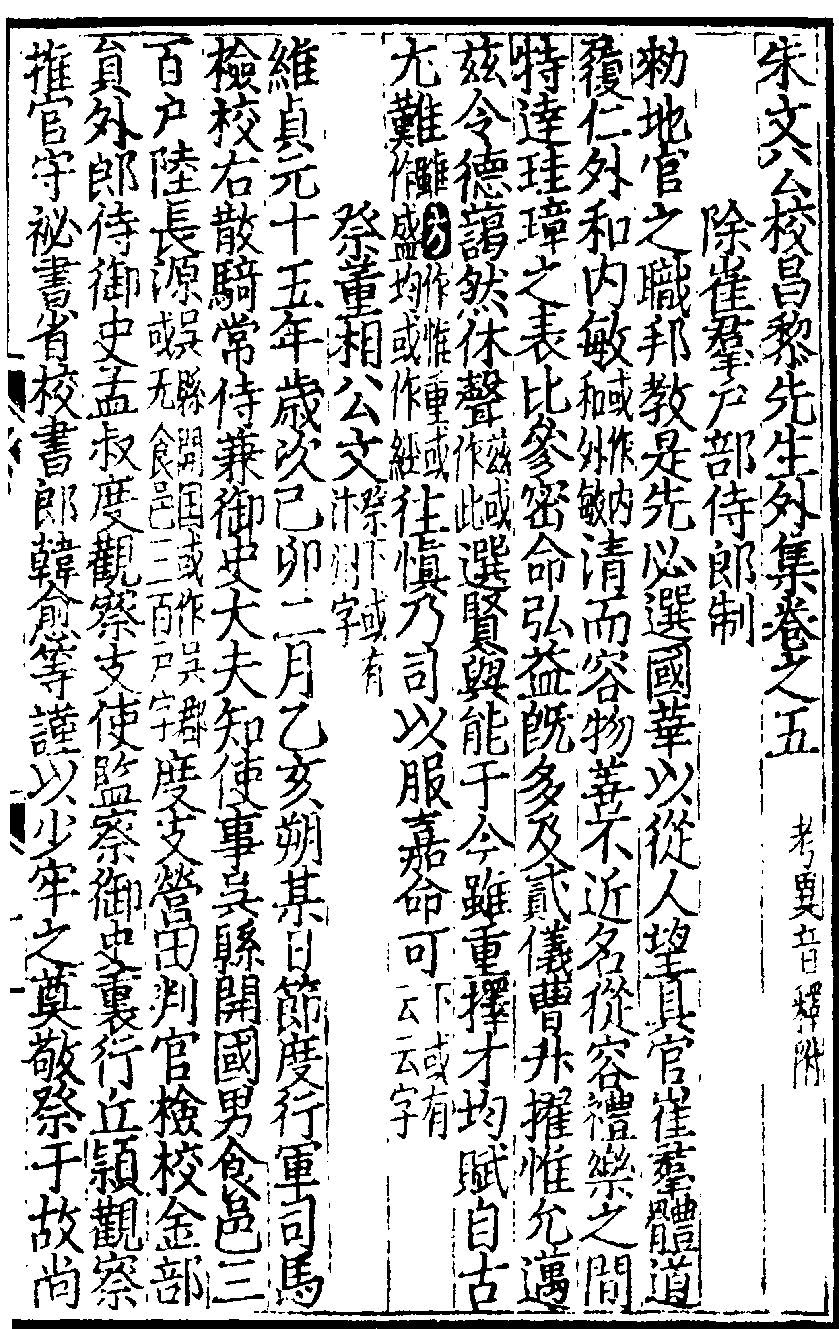 朱文公校昌黎先生外集卷之五 考異音釋附
除崔羣户部侍郎制
勑地官之職邦教是先必選國華以從人望具官崔羣體道
履仁外和内敏或作内和外敏清而容物善不近名從容禮樂之間
特達珪璋之表比參密命弘益旣多及貳儀曹升擢惟允邁
兹令德藹然休聲兹或作此選賢與能于今雖重擇才均賦自古
尢難雖方作惟重或難作盛均或作經往愼乃司以服嘉命可下或有云云字
祭董相公文祭下或有汴州字
維貞元十五年歳次己卯二月乙亥朔某日節度行軍司馬
檢校右散騎常侍兼御史大夫知使事吳縣開國男食邑三
百户陸長源吳縣開国或作吳郡或无食邑三百户字度支營田判官檢校金部
貟外郎侍御史孟叔度觀察支使監察御史裏行丘頴觀察
推官守祕書省校書郎韓愈等謹以少牢之奠敬祭于故尚